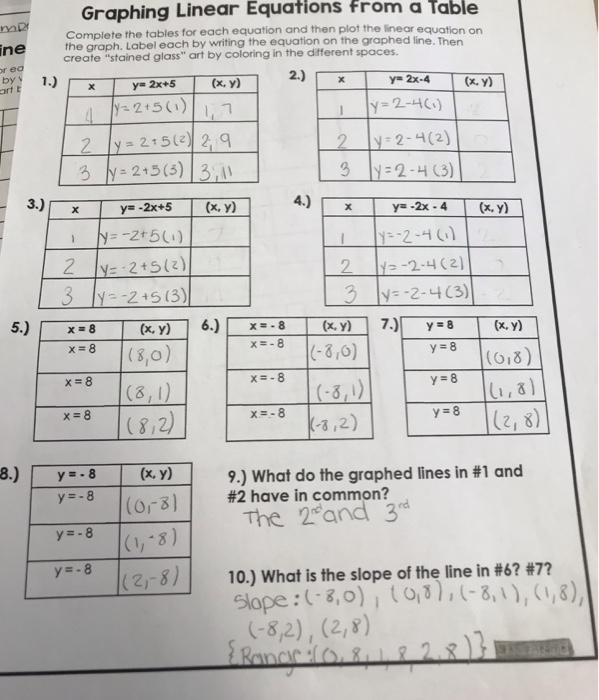 Graphing Linear Equations from a Table
Complete the tables for each equation and then plot the linear equation on
the graph. Label each by writing the equation on the graphed line. Then
create "stained glass" art by coloring in the different spaces.
ine
by
art
1.) x y= 2x+5 (x, y)
y=2+5(1) 1,7
2 y=2+5(2) 2,9
3 y=2+5(3) 3,11
2.) x y= 2x-4 (x, y)
1 y=2-4(1)
2 y=2-4(2)
3 y=2-4(3)
3.) x y= -2x+5 (x, y)
1 y=-2+5(1)
2 y=-2+5(2)
3 y=-2+5(3)
4.) x y= -2x - 4 (x, y)
1 y=-2-4(1)
2 y=-2-4(2)
3 y=-2-4(3)
5.) x = 8 (x, y)
x = 8 (8,0)
x = 8 (8,1)
x = 8 (8,2)
6.) x = - 8 (x, y)
x = - 8 (-8,0)
x = - 8 (-8,1)
x = - 8 (-8,2)
7.) y = 8 (x, y)
y = 8 (0,8)
y = 8 (1,8)
y = 8 (2,8)
8.) y = - 8 (x, y)
y = - 8 (0,-8)
y = - 8 (1,-8)
y = - 8 (2,-8)
9.) What do the graphed lines in #1 and
#2 have in common?
The 2nd and 3rd
10.) What is the slope of the line in #6? #7?
Slope:(-8,0), (0,8), (-8,1), (1,8),
(-8,2), (2,8)
{Range:(0,8,1,8 2,8)}